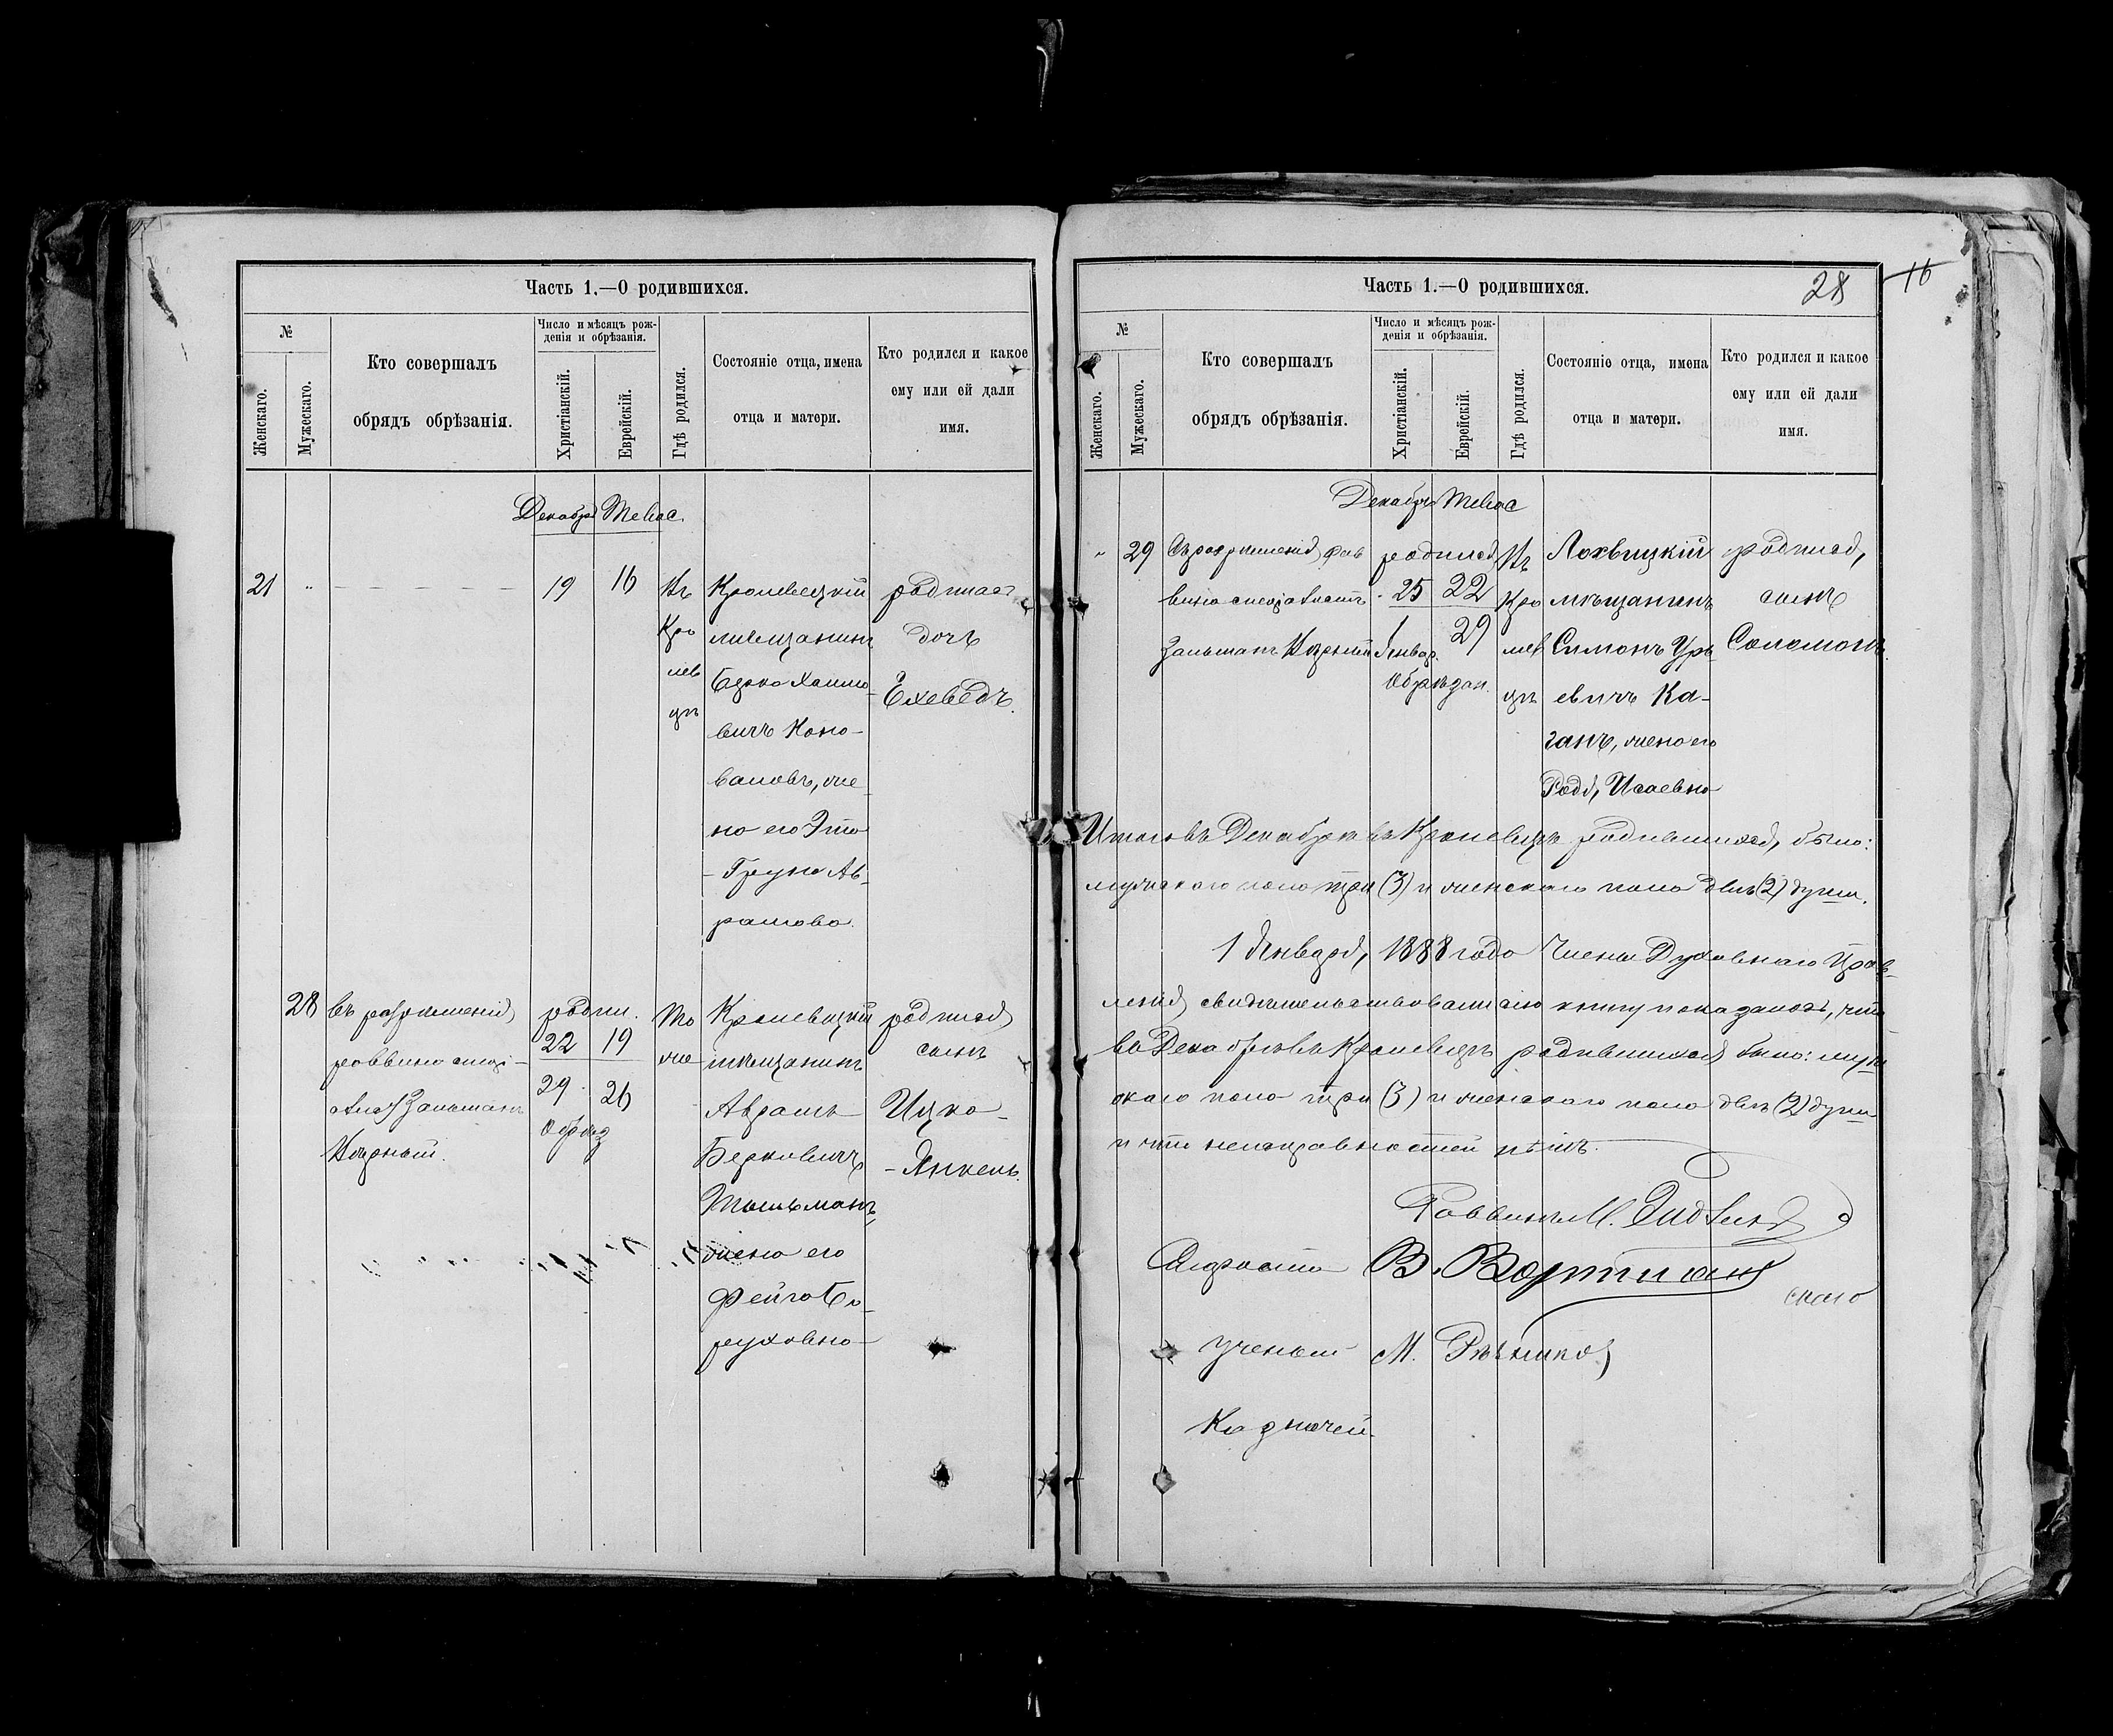 Часть 1.—О родившихся.
№
Женскаго.
Мужескаго.
Кто совершалъ
обрядъ обрѣзанія.
Число и мѣсяцъ рож-
денія и обрѣзанія.
Христіанскій.
Еврейскій.
Гдѣ родился.
Состояніе отца, имена
отца и матери.
Кто родился и какое
ему или ей дали
имя.
Декабрь Тевес.
21 19 16
Въ
Кро
лев
цѣ
Кролевецкій
мѣщанинъ
Берко Хаимо-
вичъ Коно-
валовъ, же-
на его Эта
-Груня Ав-
рамова.
родилась
дочь
Ехеведъ.
28
съ разрѣшенія
раввина спеці-
алистъ Зальманъ
родил.
22 19
29 26
обрѣз
То
же
Кролевецкій
мѣщанинъ
Аврамъ
Берковичъ
жена его
Фейга Бо-
руховна
родился
сынъ
Ицко-
-Янкель.
Часть 1.—О родившихся.
28
16
№
Женскаго.
Мужескаго.
Кто совершалъ
обрядъ обрѣзанія.
Число и мѣсяцъ рож-
денія и обрѣзанія.
Христіанскій.
Еврейскій.
Гдѣ родился.
Состояніе отца, имена
отца и матери.
Кто родился и какое
ему или ей дали
имя.
Декабрь Тевес
29
Съ разрѣшенія рав
вина спеціалистъ
Зальманъ
родился
25 22
1 29
Январ.
обрѣзан.
Въ
Кро
лев
цѣ
Лохвицкій
мѣщанинъ
Симонъ Урь-
евичъ Ка-
ганъ, жена его
Исаевна
родился
сынъ
Соломонъ.
Итого въ Декабрѣ въ Кролевцѣ родившихся было:
мужскаго пола три (3) и женскаго пола двѣ (2) души.
1 Января 1888 года Члены Духовнаго Прав-
ленія свидѣтельствовали сію книгу и оказалось, что
въ Декабрѣ въ Кролевцѣ родившихся было: муж
скаго пола три (3) и женскаго пола двѣ (2) души
и что неисправностей нѣтъ.
Раввинъ М.
Староста В.
ученый М.
Казначей